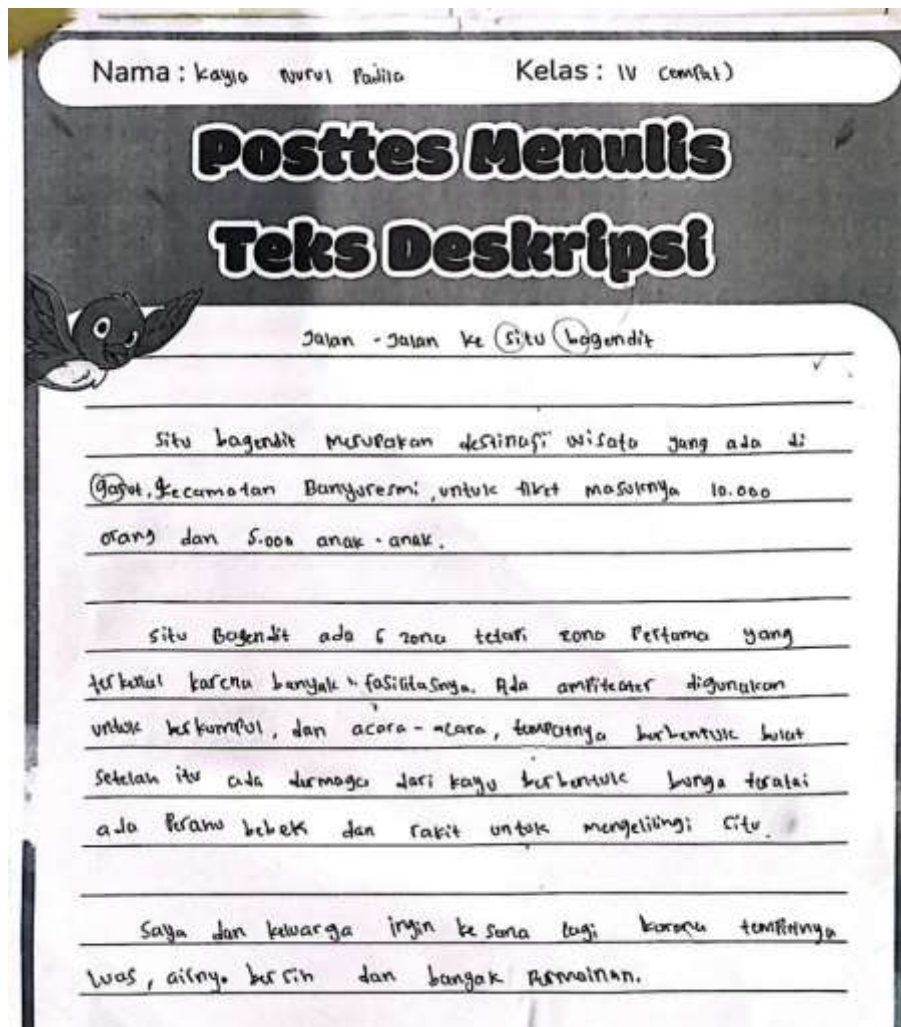 Nama : Kayla Nurul Padila Kelas : IV (empat)
Posttes Menulis
Teks Deskripsi
Jalan - Jalan ke situ bagendit
Situ bagendit merupakan destinasi wisata yang ada di
garut, kecamatan Banyuresmi, untuk tiket masuknya 10.000
orang dan 5.000 anak - anak.
Situ Bagendit ada 6 zona tetapi zona Pertama yang
terkenal karena banyak fasilitasnya. Ada ampiteater digunakan
untuk berkumpul, dan acara - acara, tempatnya berbentuk bulat
Setelah itu ada dermaga dari kayu berbentuk bunga teratai
ada Perahu bebek dan rakit untuk mengelilingi situ.
Saya dan keluarga ingin ke sana lagi karena tempatnya
luas, airnya bersih dan banyak Permainan.